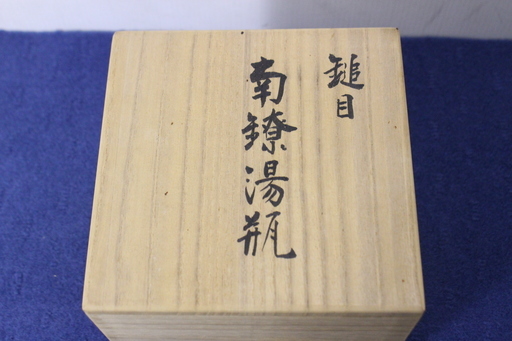 鎚目
南鐐湯瓶